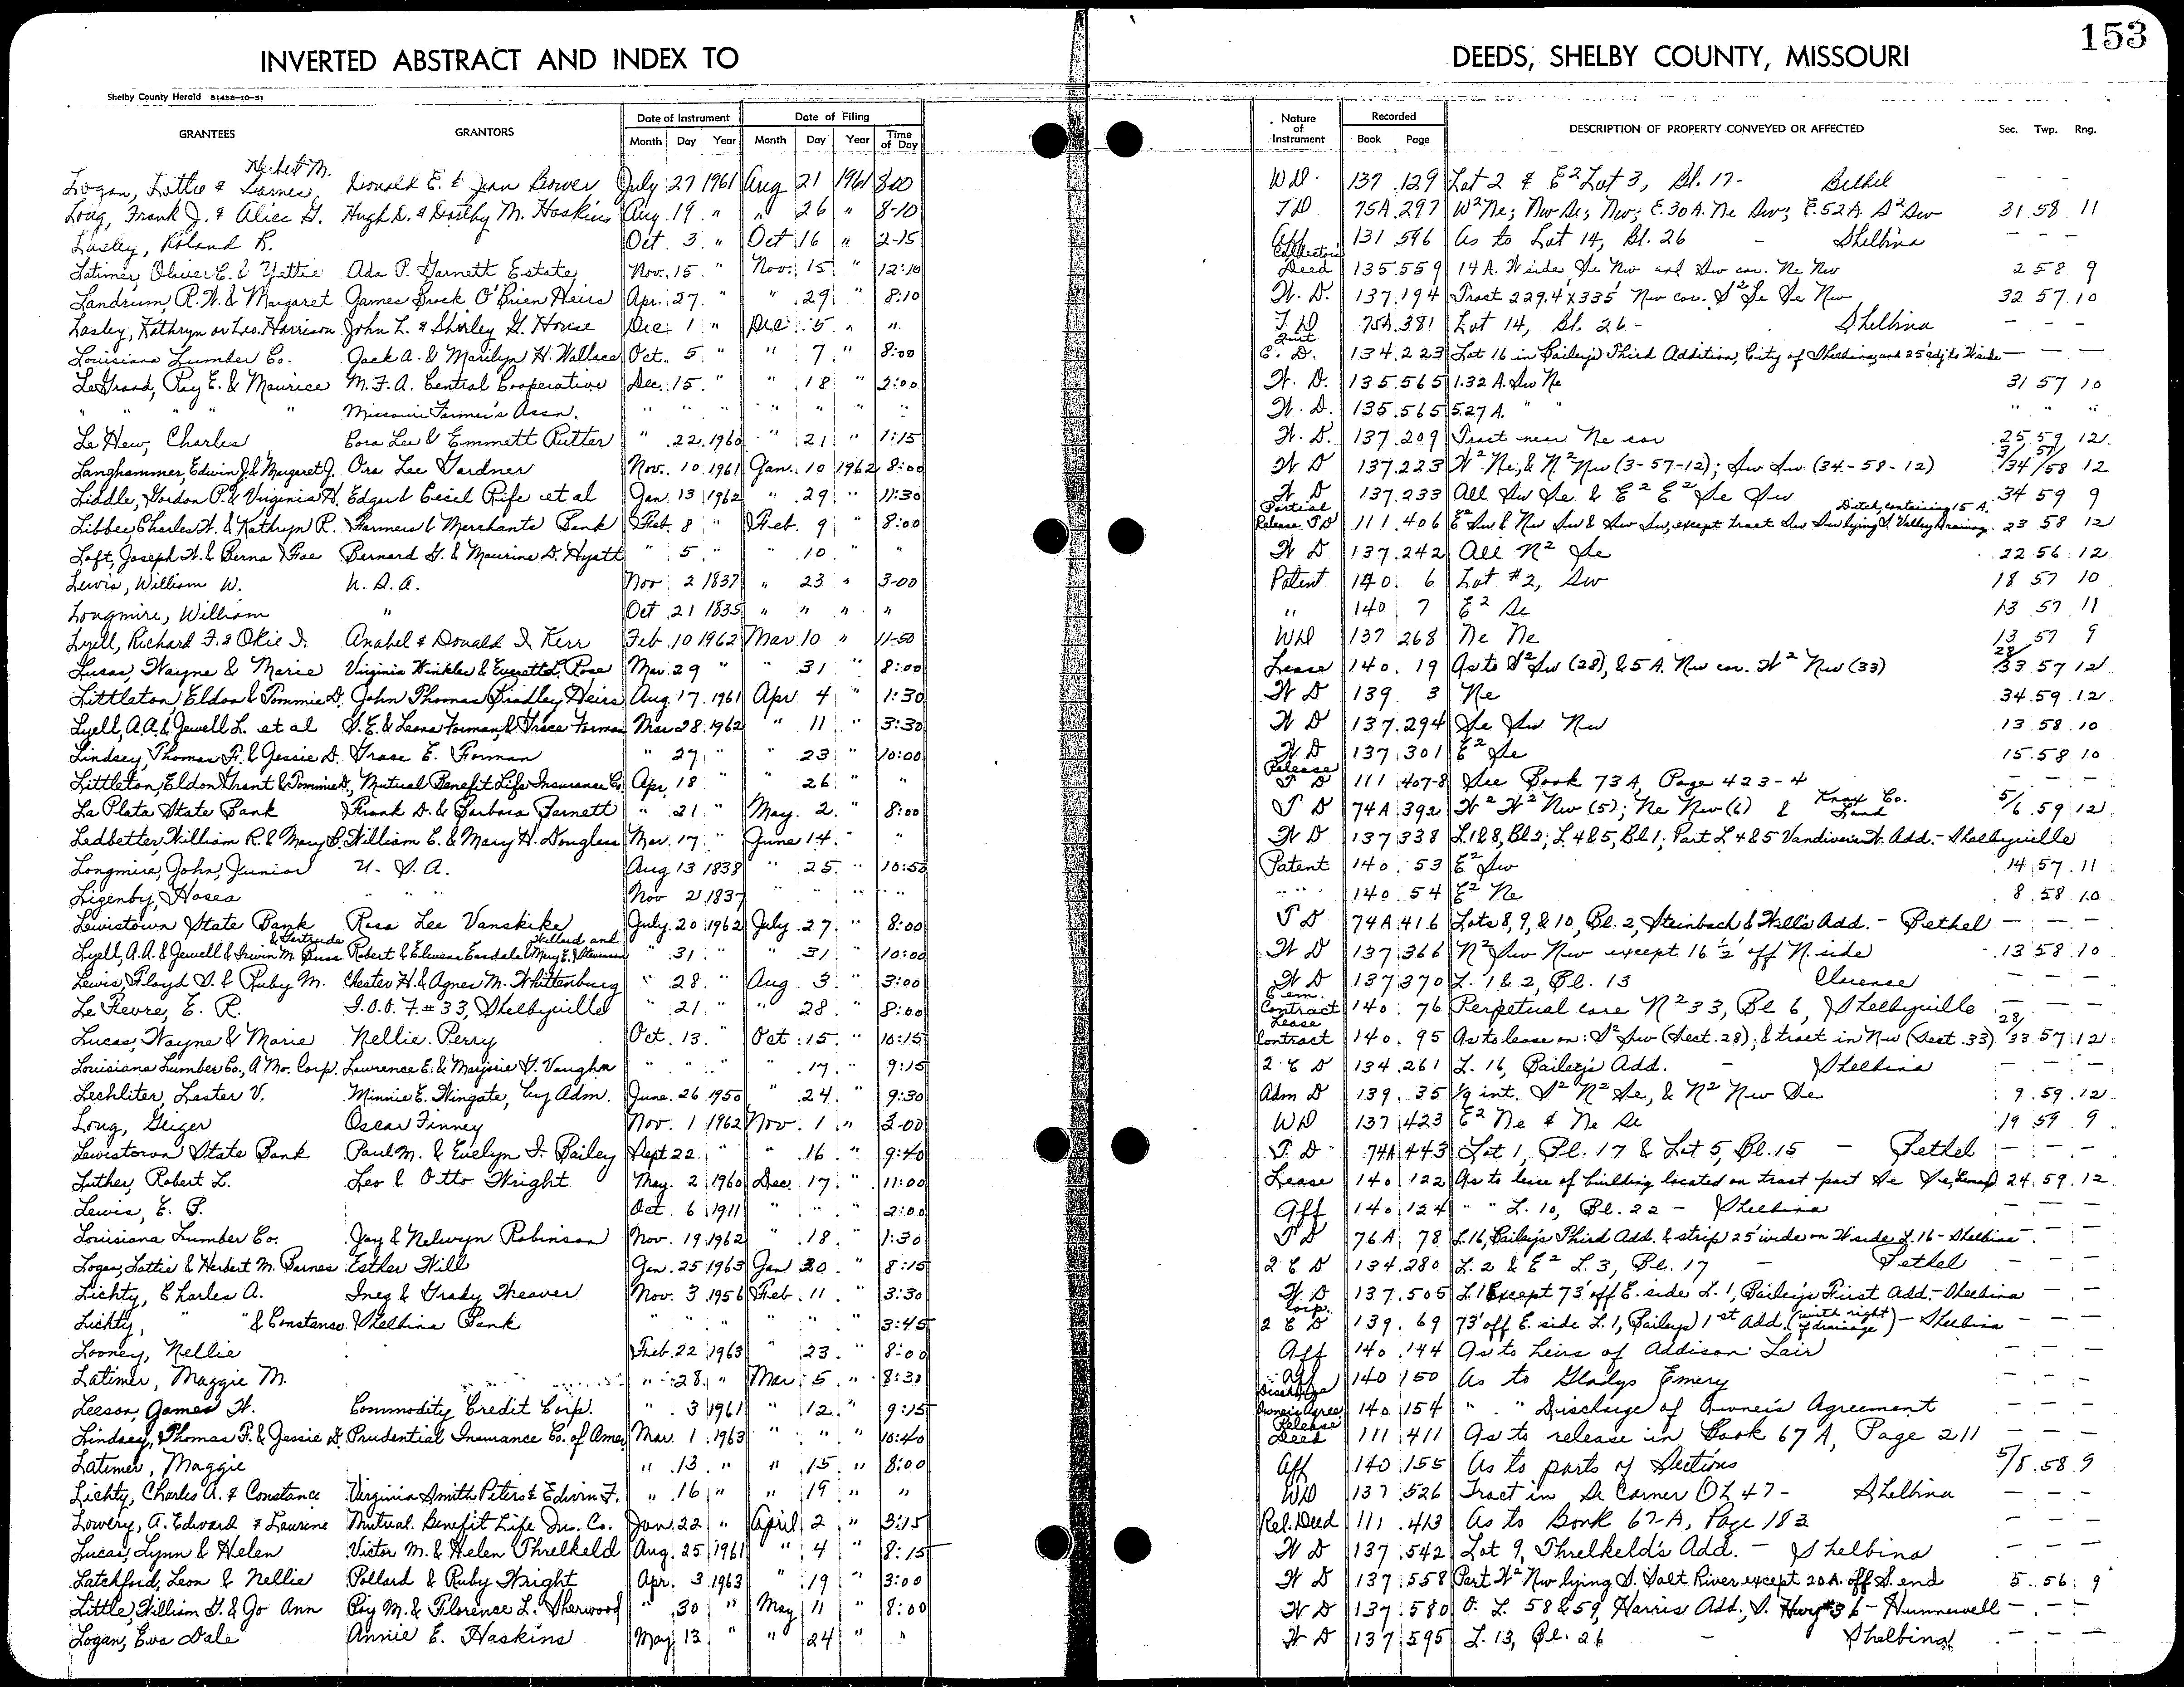 153
INVERTED ABSTRACT AND INDEX TO DEEDS, SHELBY COUNTY, MISSOURI
Shelby County Herald 51458-10-51
GRANTEES GRANTORS Date of Instrument Date of Filing Nature of Instrument Recorded DESCRIPTION OF PROPERTY CONVEYED OR AFFECTED Sec. Twp. Rng.
Month Day Year Month Day Year Time of Day Book Page
Logan, Lottie & Herbert M. Barnes, Donald E. & Jean Bower July 27 1961 Aug 21 1961 8:00 WD. 137 129 Lot 2 & E² Lot 3, Bl. 17 - Bethel - - -
Long, Frank J. & Alice G. Hugh D. & Dorthy M. Hoskins Aug. 19 " " 26 " 8-10 T D 75A 297 W² Ne; Nw Se; Nw; E. 30 A. Ne Sw; E. 52 A. S² Sw 31 58 11
Lasley, Roland R. Oct 3 " Oct 16 " 2-15 Aff 131 596 As to Lot 14, Bl. 26 - Shelbina - - -
Latimer, Oliver C. & Yettie Ada P. Garnett Estate Nov. 15 " Nov. 15 " 12:10 Collector's Deed 135 559 14 A. W side Se Nw and Sw cor. Ne Nw 2 58 9
Landrum, R. W. & Margaret James Buck O'Brien Heirs Apr. 27 " " 29 " 8:10 W. D. 137 194 Tract 229.4' x 335' Nw cor. S² Se Se Nw 32 57 10
Lasley, Kathryn or Leo. Harrison John L. & Shirley G. House Dec 1 " Dec. 5 " " T D 75A 381 Lot 14, Bl. 26 - Shelbina - - -
Louisiana Lumber Co. Jack A. & Marilyn H. Wallace Oct. 5 " " 7 " 8:00 Quit C. D. 134 223 Lot 16 in Bailey's Third Addition, City of Shelbina, and 25' adj to W side - - -
LeGrand, Ray E. & Maurice M. F. A. Central Cooperative Dec. 15 " " 18 " 2:00 W. D. 135 565 1.32 A. Sw Ne 31 57 10
" " " " Missouri Farmer's Assn. " " " " " " " W. D. 135 565 5.27 A. " " " " "
Le Hew, Charles Cora Lee & Emmett Rutter " 22 1960 " 21 " 1:15 W. D. 137 209 Tract near Ne cor 25 59 12
Langhammer, Edwin J. & Margaret J. Ora Lee Gardner Nov. 10 1961 Jan. 10 1962 8:00 W D 137 223 W² Ne, & N² Nw (3-57-12); Sw Sw (34-58-12) 3/34 57/58 12
Liddle, Gordon P. & Virginia H. Edgar & Cecil Rife et al Jan 13 1962 " 29 " 11:30 W D 137 233 All Sw Se & E² E² Se Sw 34 59 9
Libbee, Charles W. & Kathryn R. Farmers & Merchants Bank Feb. 8 " Feb. 9 " 8:00 Partial Release T D 111 406 E² Sw & Nw Sw & Sw Sw, except tract Sw Sw lying S. Valley Drainage Ditch, containing 15 A. 23 58 12
Loft, Joseph W. & Berna Fae Bernard G. & Maurine D. Hyatt " 5 " " 10 " " W D 137 242 All N² Se 22 56 12
Lewis, William W. U. S. A. Nov 2 1837 " 23 " 3-00 Patent 140 6 Lot #2, Sw 18 57 10
Longmire, William " Oct 21 1835 " " " " " 140 7 E² Se 13 57 11
Lyell, Richard F. & Okie I. Anabel & Donald I. Kerr Feb. 10 1962 Mar 10 " 11-50 WD 137 268 Ne Ne 13 57 9
Lucas, Wayne & Marie Virginia Winkler & Everatt L. Rose Mar. 29 " " 31 " 8:00 Lease 140 19 As to S² Sw (28), & 5 A. Nw cor. W² Nw (33) 28/33 57 12
Littleton, Eldon & Tommie D. John Thomas Bradley Heirs Aug 17 1961 Apr 4 " 1:30 W D 139 3 Ne 34 59 12
Lyell, A.A. & Jewell L. et al S. E. & Leona Forman, & Grace Forman Mar 28 1962 " 11 " 3:30 W D 137 294 Se Sw Nw 13 58 10
Lindsey, Thomas F. & Jessie D. Grace E. Forman " 27 " " 23 " 10:00 W D 137 301 E² Se 15 58 10
Littleton, Eldon Grant & Tommie D. Mutual Benefit Life Insurance Co. Apr. 18 " " 26 " " Release T D 111 407-8 See Book 73 A, Page 423-4 - - -
La Plata State Bank Frank D. & Barbara Barnett " 21 " May 2 " 8:00 T D 74A 392 W² W² Nw (5); Ne Nw (6) & Knox Co. Land 5/6 59 12
Ledbetter, William R. & Mary S. William C. & Mary H. Douglass Mar. 17 " June 14 " " W D 137 338 L. 1 & 8, Bl 2; L. 4 & 5, Bl 1; Part L 4 & 5 Vandiver's W. Add. - Shelbyville
Longmire, John, Junior U. S. A. Aug 13 1838 " 25 " 10:50 Patent 140 53 E² Sw 14 57 11
Ligenby, Hosea " " " Nov 2 1837 " " " " " 140 54 E² Ne 8 58 10
Lewistown State Bank Rosa Lee Vanskike July 20 1962 July 27 " 8:00 T D 74A 416 Lots 8, 9, & 10, Bl. 2, Steinbach & Will's Add. - Bethel - - -
Lyell, A.A. & Jewell & Irwin M. & Gertrude Buss Robert & Elvena Easdale Willard and Mary E. Stevenson " 31 " " 31 " 10:00 W D 137 366 N² Sw Nw except 16 ½' off N. side 13 58 10
Lewis, Floyd S. & Ruby M. Chester H. & Agnes M. Whittenburg " 28 " Aug. 3 " 3:00 W D 137 370 L. 1 & 2, Bl. 13 Clarence - - -
Le Fevre, E. R. I.O.O.F. #33, Shelbyville " 21 " " 28 " 8:00 Cem. Contract 140 76 Perpetual care N² 33, Bl 6, Shelbyville - - -
Lucas, Wayne & Marie Nellie Perry Oct. 13 " Oct 15 " 10:15 Lease Contract 140 95 As to lease on: S² Sw (Sect. 28); & tract in Nw (Sect. 33) 28/33 57 12
Louisiana Lumber Co., A Mo. Corp. Lawrence E. & Marjorie G. Vaughn " " " " 17 " 9:15 2 C D 134 261 L. 16, Bailey's Add. - Shelbina - - -
Lechliter, Lester V. Minnie E. Wingate, by Adm. June 26 1950 " 24 9:30 Adm D 139 35 1/9 int. S² N² Se, & N² Nw Se 9 59 12
Long, Geiger Oscar Finney Nov. 1 1962 Nov. 1 " 3-00 WD 137 423 E² Ne & Ne Se 19 59 9
Lewistown State Bank Paul M. & Evelyn I. Bailey Sept 22 " " 16 " 9:40 T. D 74A 443 Lot 1, Bl. 17 & Lot 5, Bl. 15 - Bethel - - -
Luther, Robert L. Leo & Otto Wright May 2 1960 Dec. 17 " 11:00 Lease 140 122 As to lease of building located on tract part Se Se, 24 59 12
Lewis, E. P. Oct. 6 1911 " " " 2:00 Aff 140 124 " " L. 10, Bl. 22 - Shelbina - - -
Louisiana Lumber Co. Jay & Nelwyn Robinson Nov. 19 1962 " 18 " 1:30 T D 76A 78 L. 16, Bailey's Third Add. & strip 25' wide on W side L. 16 - Shelbina - - -
Logan, Lottie & Herbert M. Barnes Esther Hill Jan. 25 1963 Jan 30 " 8:15 2 C D 134 280 L. 2 & E² L. 3, Bl. 17 - Bethel - - -
Lichty, Charles A. Inez & Grady Weaver Nov. 3 1956 Feb. 11 " 3:30 W D 137 505 L. 1 Except 73' off E. side L. 1, Bailey's First Add. - Shelbina - - -
Lichty, " " & Constance Shelbina Bank " " " " " 3:45 Corp. 2 C D 139 69 73' off E. side L. 1, Bailey's 1st Add. (with right of drainage) - Shelbina - - -
Looney, Nellie Feb 22 1963 " 23 " 8:00 Aff 140 144 As to heirs of Addison Lair - - -
Latimer, Maggie M. " 28 " Mar 5 " 8:30 Aff 140 150 As to Gladys Emery - - -
Leeson, James W. Commodity Credit Corp. " 3 1961 " 12 " 9:15 Discharge Owner's Agree 140 154 " " Discharge of Owner's Agreement - - -
Lindsey, Thomas F. & Jessie D. Prudential Insurance Co. of Amer Mar. 1 1963 " " " 10:40 Release Deed 111 411 As to release in Book 67 A, Page 211 - - -
Latimer, Maggie " 13 " " 15 " 8:00 Aff 140 155 As to parts of Sections 5/8 58 9
Lichty, Charles A. & Constance Virginia Smith Peters & Edwin F. " 16 " " 19 " " WD 137 526 Tract in Se Corner OL 47 - Shelbina - - -
Lowery, A. Edward & Laurene Mutual Benefit Life Ins. Co. Jan 22 " April 2 " 3:15 Rel. Deed 111 413 As to Book 67-A, Page 182 - - -
Lucas, Lynn & Helen Victor M. & Helen Threlkeld Aug. 25 1961 " 4 " 8:15 W D 137 542 Lot 9, Threlkeld's Add. - Shelbina - - -
Latchford, Leon & Nellie Pollard & Ruby Wright Apr. 3 1963 " 19 " 3:00 W D 137 558 Part W² Nw lying S. Salt River except 20 A. off S. end 5 56 9
Little, William G. & Jo Ann Roy M. & Florence L. Sherwood " 30 " May 11 " 8:00 W D 137 580 O. L. 58 & 59, Harris Add., S. Hwy #36 - Hunnewell - - -
Logan, Eva Dale Annie E. Haskins May 13 " " 24 " " W D 137 595 L. 13, Bl. 26 - Shelbina - - -